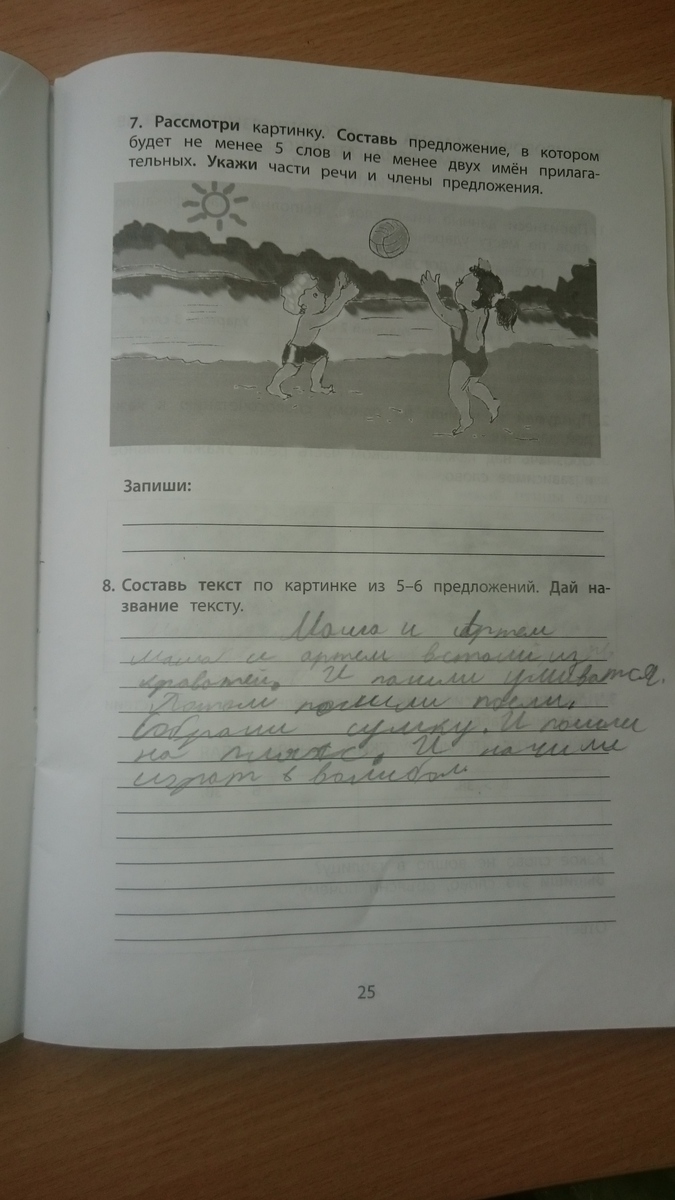 7. Рассмотри картинку. Составь предложение, в котором
будет не менее 5 слов и не менее двух имён прилага-
тельных. Укажи части речи и члены предложения.
Запиши:
8. Составь текст по картинке из 5–6 предложений. Дай на-
звание тексту.
Маша и Артем
Маша и артем встали из
кроватей. И пошли умиватся.
Потом поели,
собрали сумку. И пошли
на пляж. И начили
играт в волибол
25